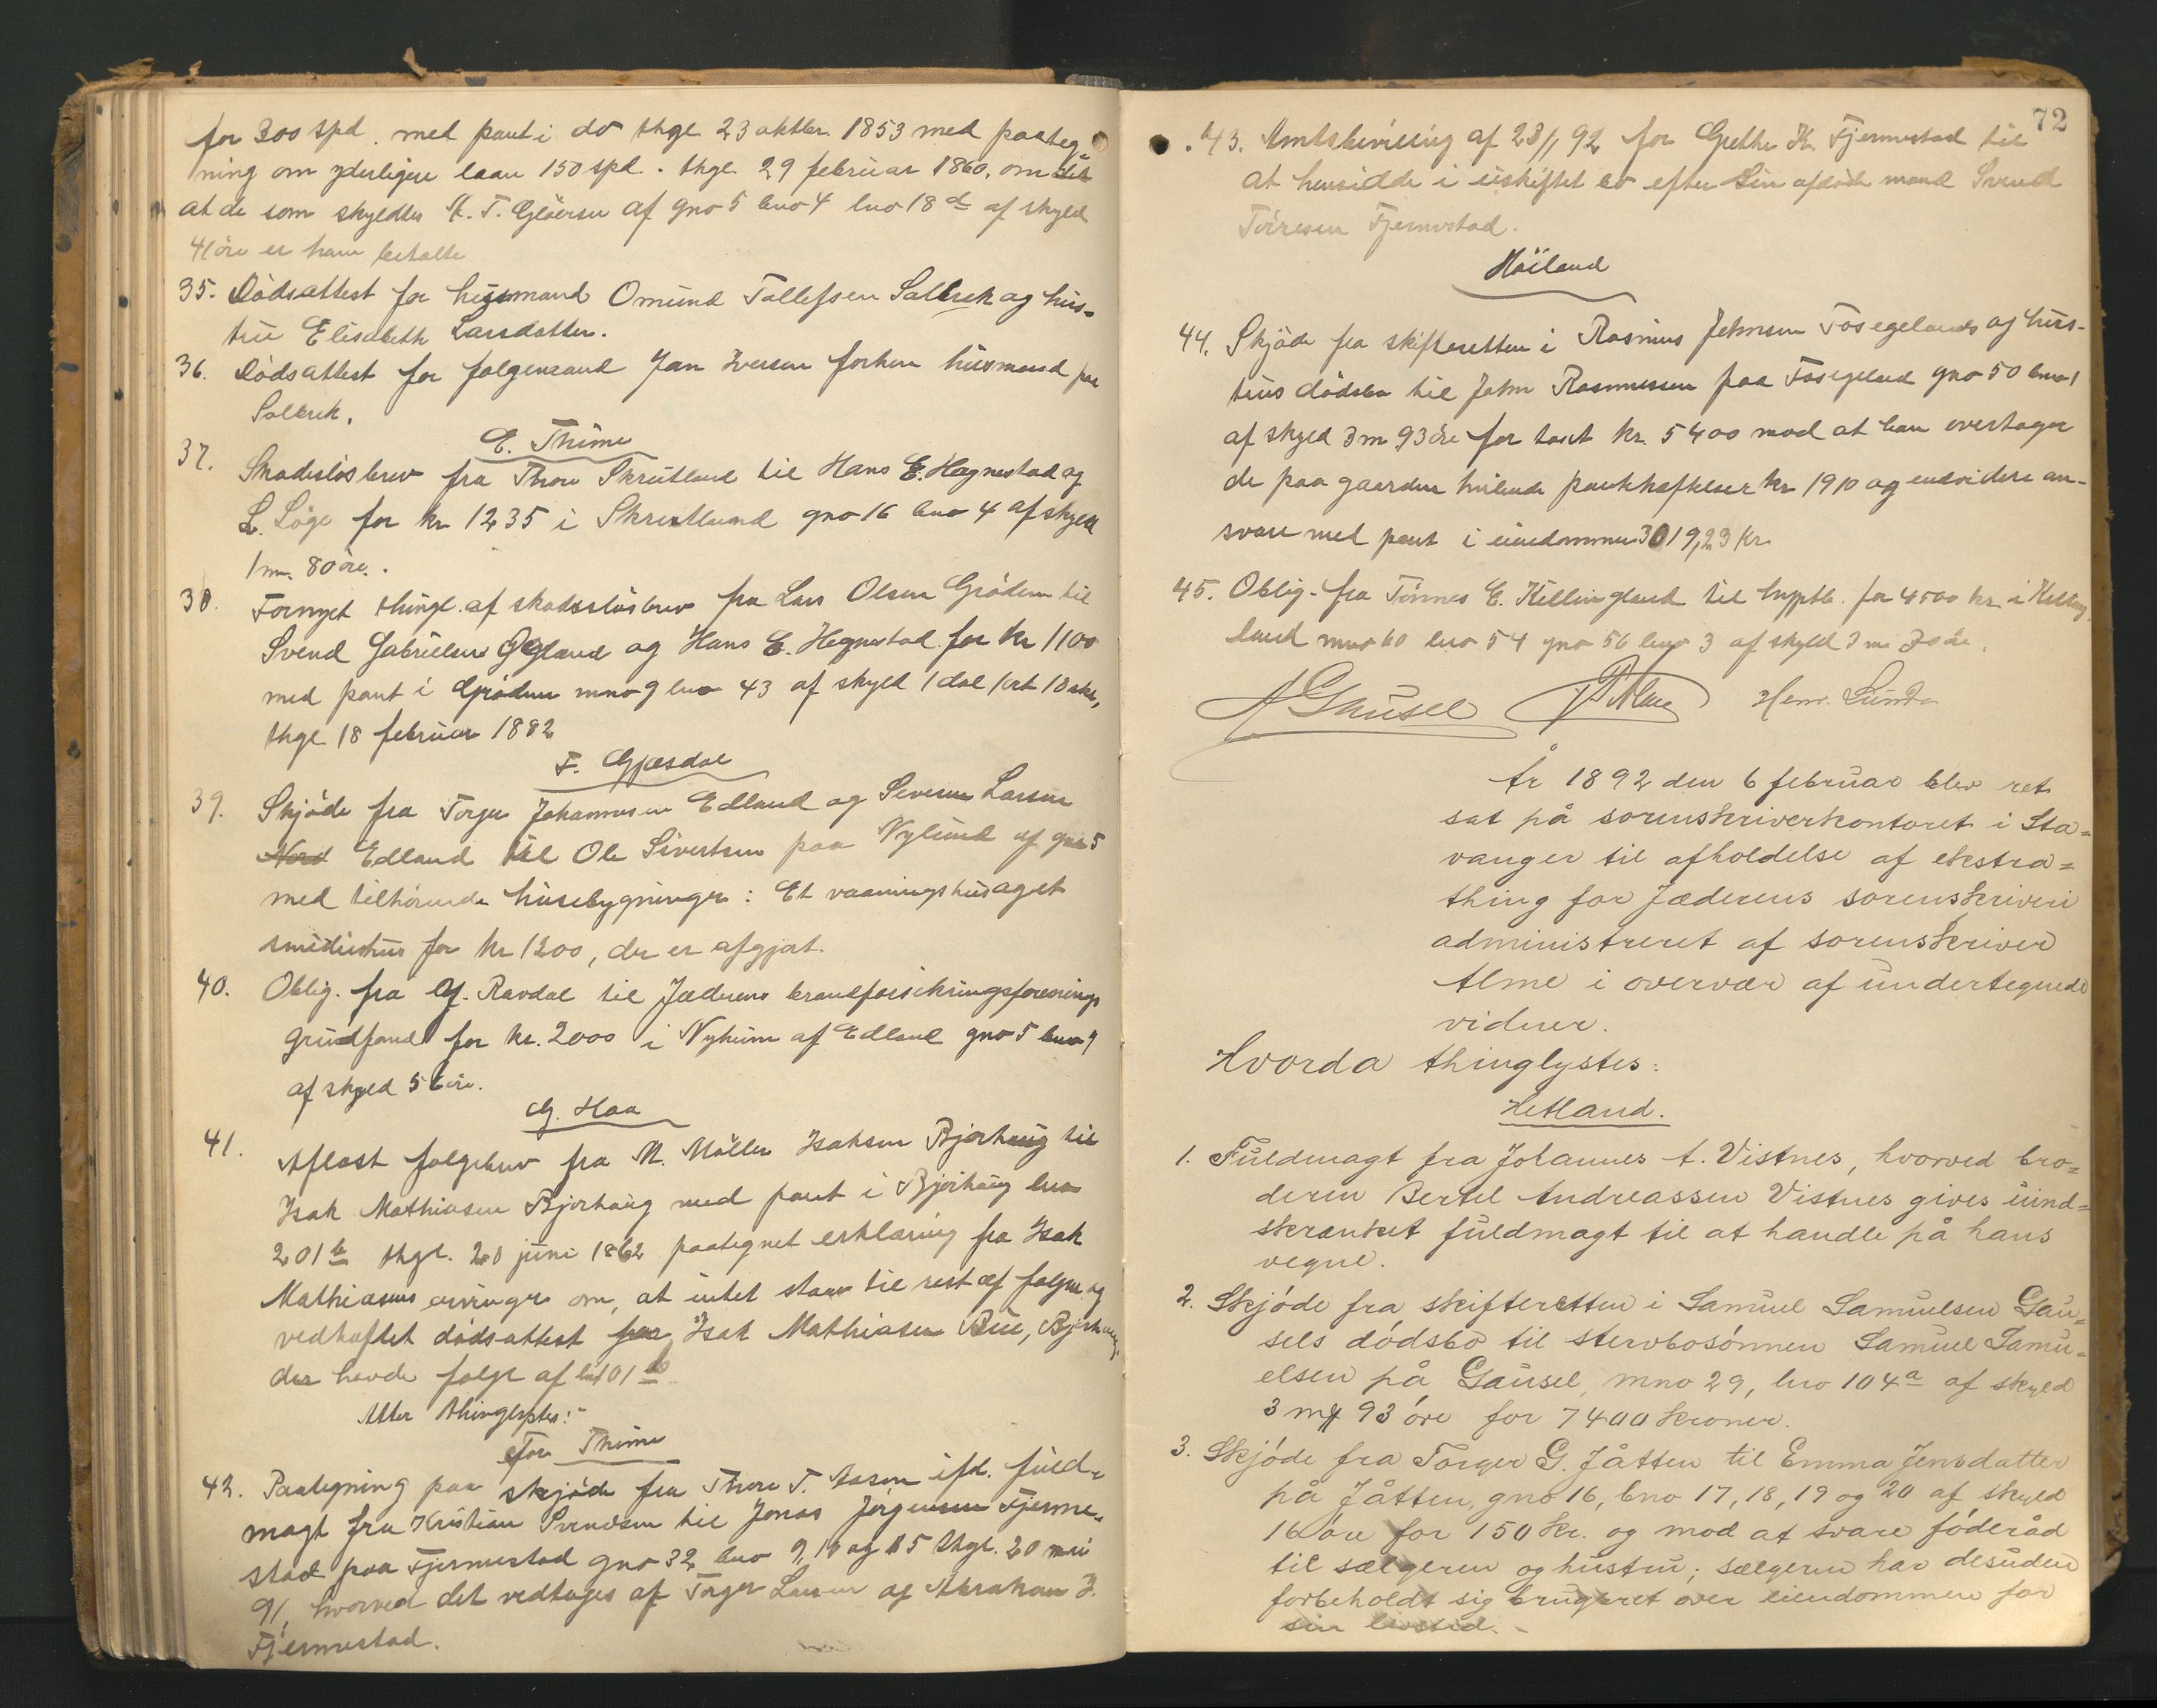 for 300 spd. med pant i do thgl. 23 oktbr. 1853 med paateg=
ning om yderligere laan 150 spd. thgl. 29 februar 1860, om
at de som skyldtes af gno 5 bno 4 lno 18 d af skyld
41 öre er ham betalte
35. Dödsattest for husmand Omund Tollefsen Salbrek og hus-
tru Elisabeth Larsdatter.
36. Dödsattest for folgemand Jan Iversen forhen husmand paa
Salbrek.
E. Thime
37. Skadeslösbrev fra Thore Skrutland til Hans E. Hognestad og
L. Löge for kr 1235 i Skrutland gno 16 bno 4 af skyld
1 m. 80 öre.
38. Fornyet thingl. af skadeslösbrev fra Lars Olsen Gröden til
Svend Gabrielsen og Hans E. Hognestad for kr 1100
med pant i Gröden mno 9 lno 43 af skyld 1 dal 1 ort 18 sk,
thgl 18 februar 1882
F. Gjæsdal
39. Skjöde fra Torger Johannesen Edland og Larsen
Edland til Ole Sivertsen paa Nylund af gno 5
med tilhörende husebygninger: Et vaaningshus og et
smidiehus for kr 1200, der er afgjort.
40. Oblig. fra G. Ravdal til Jæderens brandforsikringsforenings
grundfond for kr. 2000 i af Edland gno 5 bno 9
af skyld 56 öre.
G. Haa
41. Aflæst folgebrev fra M. Möller Isaksen Bjorhaug til
Isak Mathiasen Bjorhaug med pant i Bjorhaug lno
201 b thgl. 28 juni 1862 paategnet erklæring fra Isak
Mathiasens arvinger om, at intet staar til rest af folgen og
vedhæftet dödsattest for Isak Mathiasen Bjorhaug,
der havde folge af
Atter thinglystes:
For Thime
42. Paategning paa skjöde fra Thore T. Aasen ifl. fuld-
magt fra Kristian Svendsen til Jonas Jörgensen Fjerme-
stad paa Fjermestad gno 32 bno 9, 10 og 15 thgl. 20 mai
91, hvorved det vedtages af Torger Larsen og Abraham J.
Fjermestad.
72
43. Amtsbevilling af 23/1 92 for Grethe K. Fjermestad til
at hensidde i uskiftet bo efter sin afdöde mand Svend
Törresen Fjermestad.
Höiland
44. Skjöde fra skifteretten i Rasmus Johnsen Fosegelands og hus-
trus dödsbo til John Rasmussen paa Fosegeland gno 50 bno 1
af skyld 3 m 93 öre for taxt kr. 5400 mod at han overtager
de paa gaarden hvilende panthæftelser kr 1910 og endvidere an-
svare med pant i eiendommen 3019,23 kr.
45. Oblig. fra Tönnes E. Kellingland til hyptb. for 4500 kr i Kelling
land mno 60 lno 54 gno 56 bno 3 af skyld 3 m
A Gausel Henr. Lunde
År 1892 den 6 februar blev ret
sat på sorenskriverkontoret i Sta=
vanger til afholdelse af ekstra=
thing for Jæderens sorenskriveri
administreret af sorenskriver
Alme i overvær af undertegnede
vidner.
Hvorda thinglystes:
Hetland.
1. Fuldmagt fra Johannes A. Vistnes, hvorved bro=
deren Bertel Andreassen Vistnes gives uind=
skrænket fuldmagt til at handle på hans
vegne.
2. Skjöde fra skifteretten i Samuel Samuelsen Gau=
sels dödsbo til stervbosönnen Samuel Samu=
elsen på Gausel, mno 29, lno 104 a af skyld
3 m 93 öre for 7400 kroner.
3. Skjöde fra Torger G. Jåtten til Emma Jensdatter
på Jåtten, gno 16, bno 17, 18, 19 og 20 af skyld
16 öre for 150 kr. og mod at svare föderåd
til sælgeren og hustru; sælgeren har desuden
forbeholdt sig brugsret over eiendommen for
sin levetid.